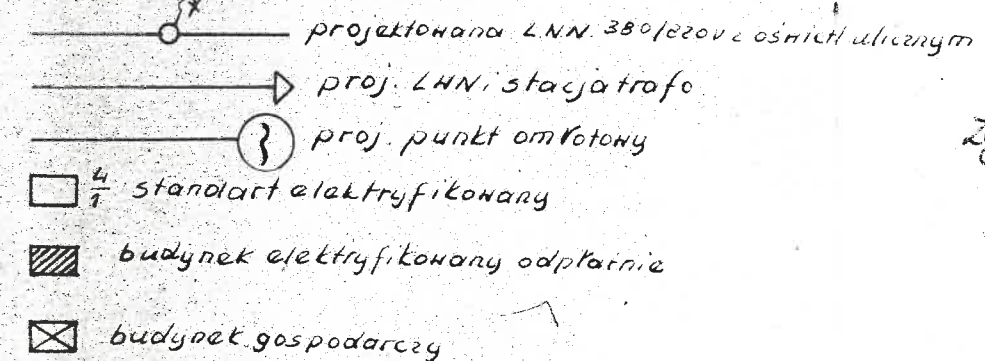 projektowana LNN. 380/220V z oświetl ulicznym
proj. LWN i stacja trafo
proj. punkt omłotowy
4/1 standart elektryfikowany
budynek elektryfikowany odpłatnie
budynek gospodarczy